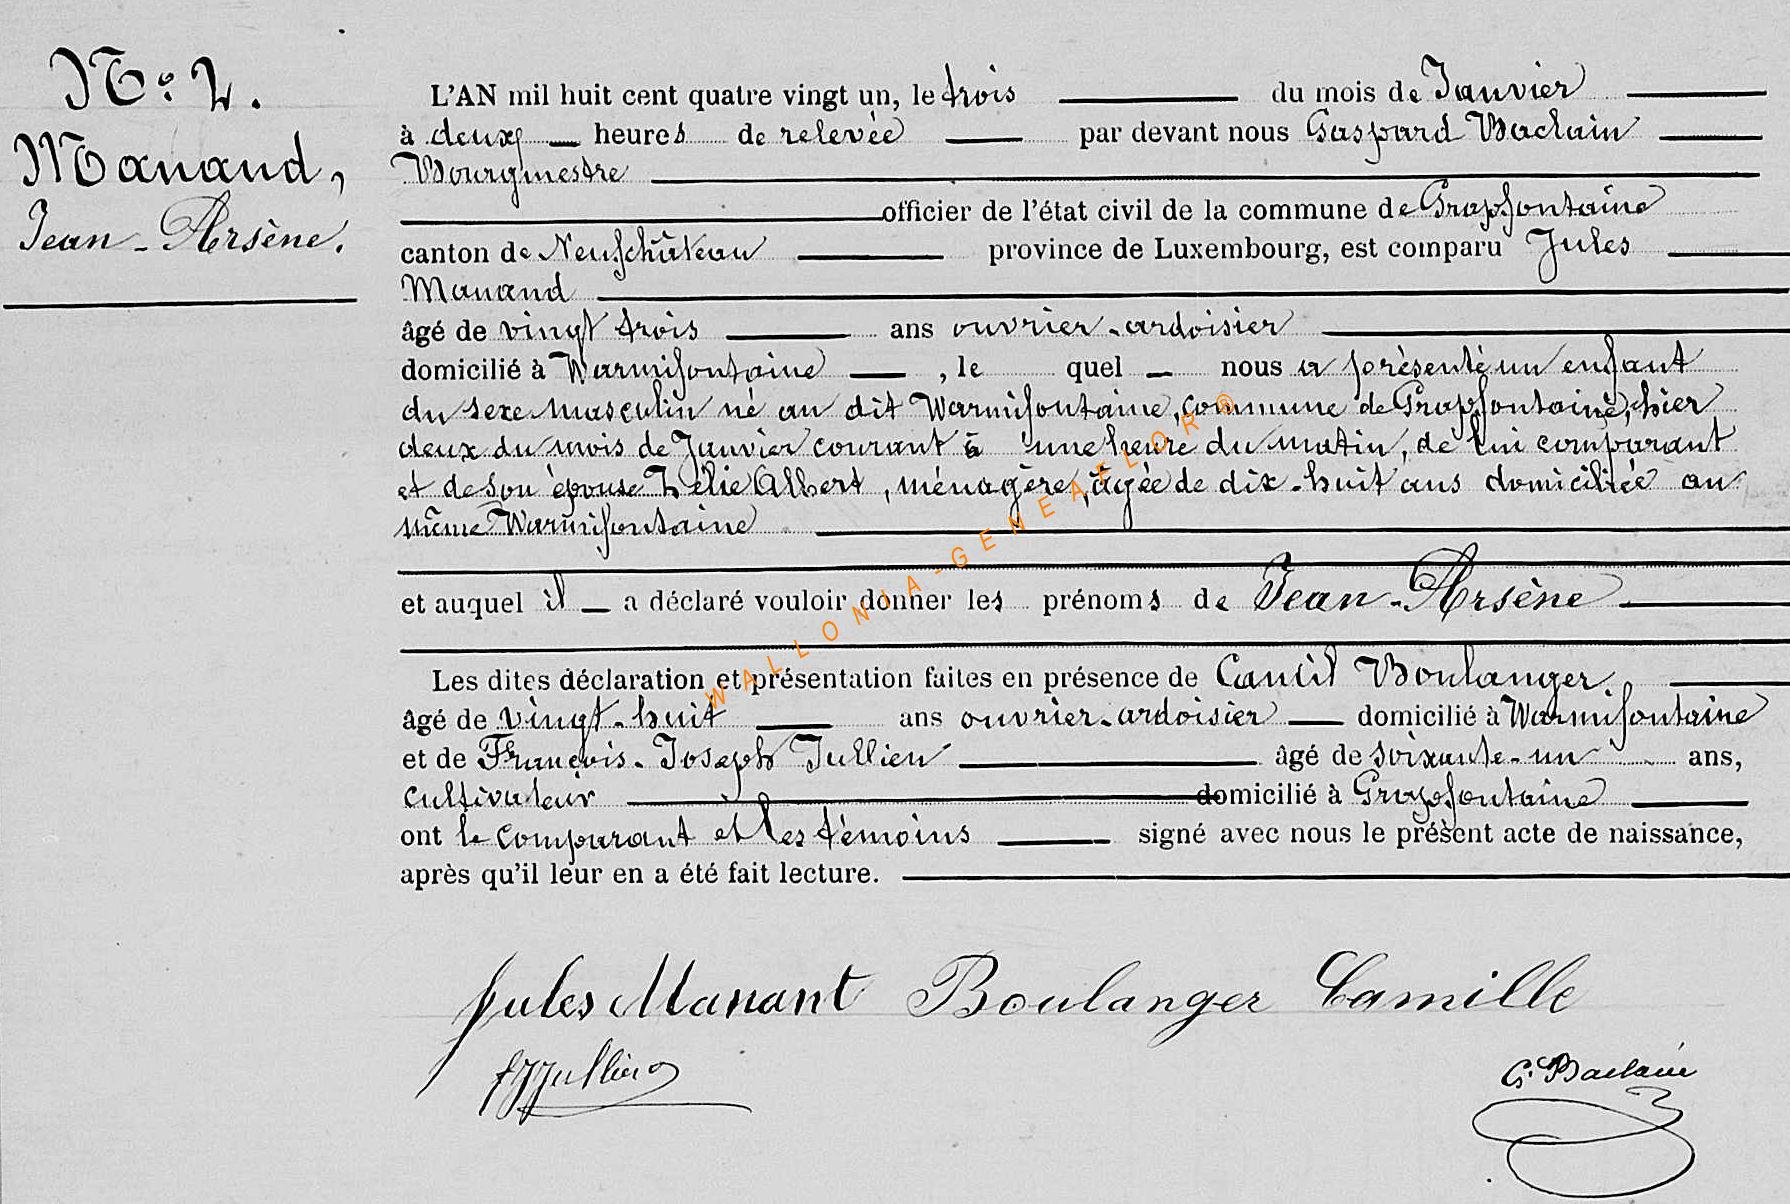 N.º 2.
Manand,
Jean-Arsène.
L'AN mil huit cent quatre vingt un, le trois du mois de Janvier
à deux heures de relevée par devant nous Gaspard Baclain
Bourgmestre
officier de l'état civil de la commune de Grapfontaine
canton de Neufchâteau province de Luxembourg, est comparu Jules
Manand
âgé de vingt trois ans ouvrier-ardoisier
domicilié à Warmifontaine, le quel nous a présenté un enfant
du sexe masculin né au dit Warmifontaine, commune de Grapfontaine, hier
deux du mois de Janvier courant à une heure du matin, de lui comparant
et de son épouse Zélie Albert, ménagère, âgée de dix-huit ans domiciliée au
même Warmifontaine
et auquel il a déclaré vouloir donner les prénoms de Jean-Arsène
Les dites déclaration et présentation faites en présence de Camil Boulanger.
âgé de vingt-huit ans ouvrier-ardoisier domicilié à Warmifontaine
et de François-Joseph Jullien âgé de soixante-un ans,
cultivateur domicilié à Grapfontaine
ont le comparant et les témoins signé avec nous le présent acte de naissance,
après qu'il leur en a été fait lecture.
Jules Manant Boulanger Camille
FJJullien G. Baclain
WALLONIA-GENEAFLOR®